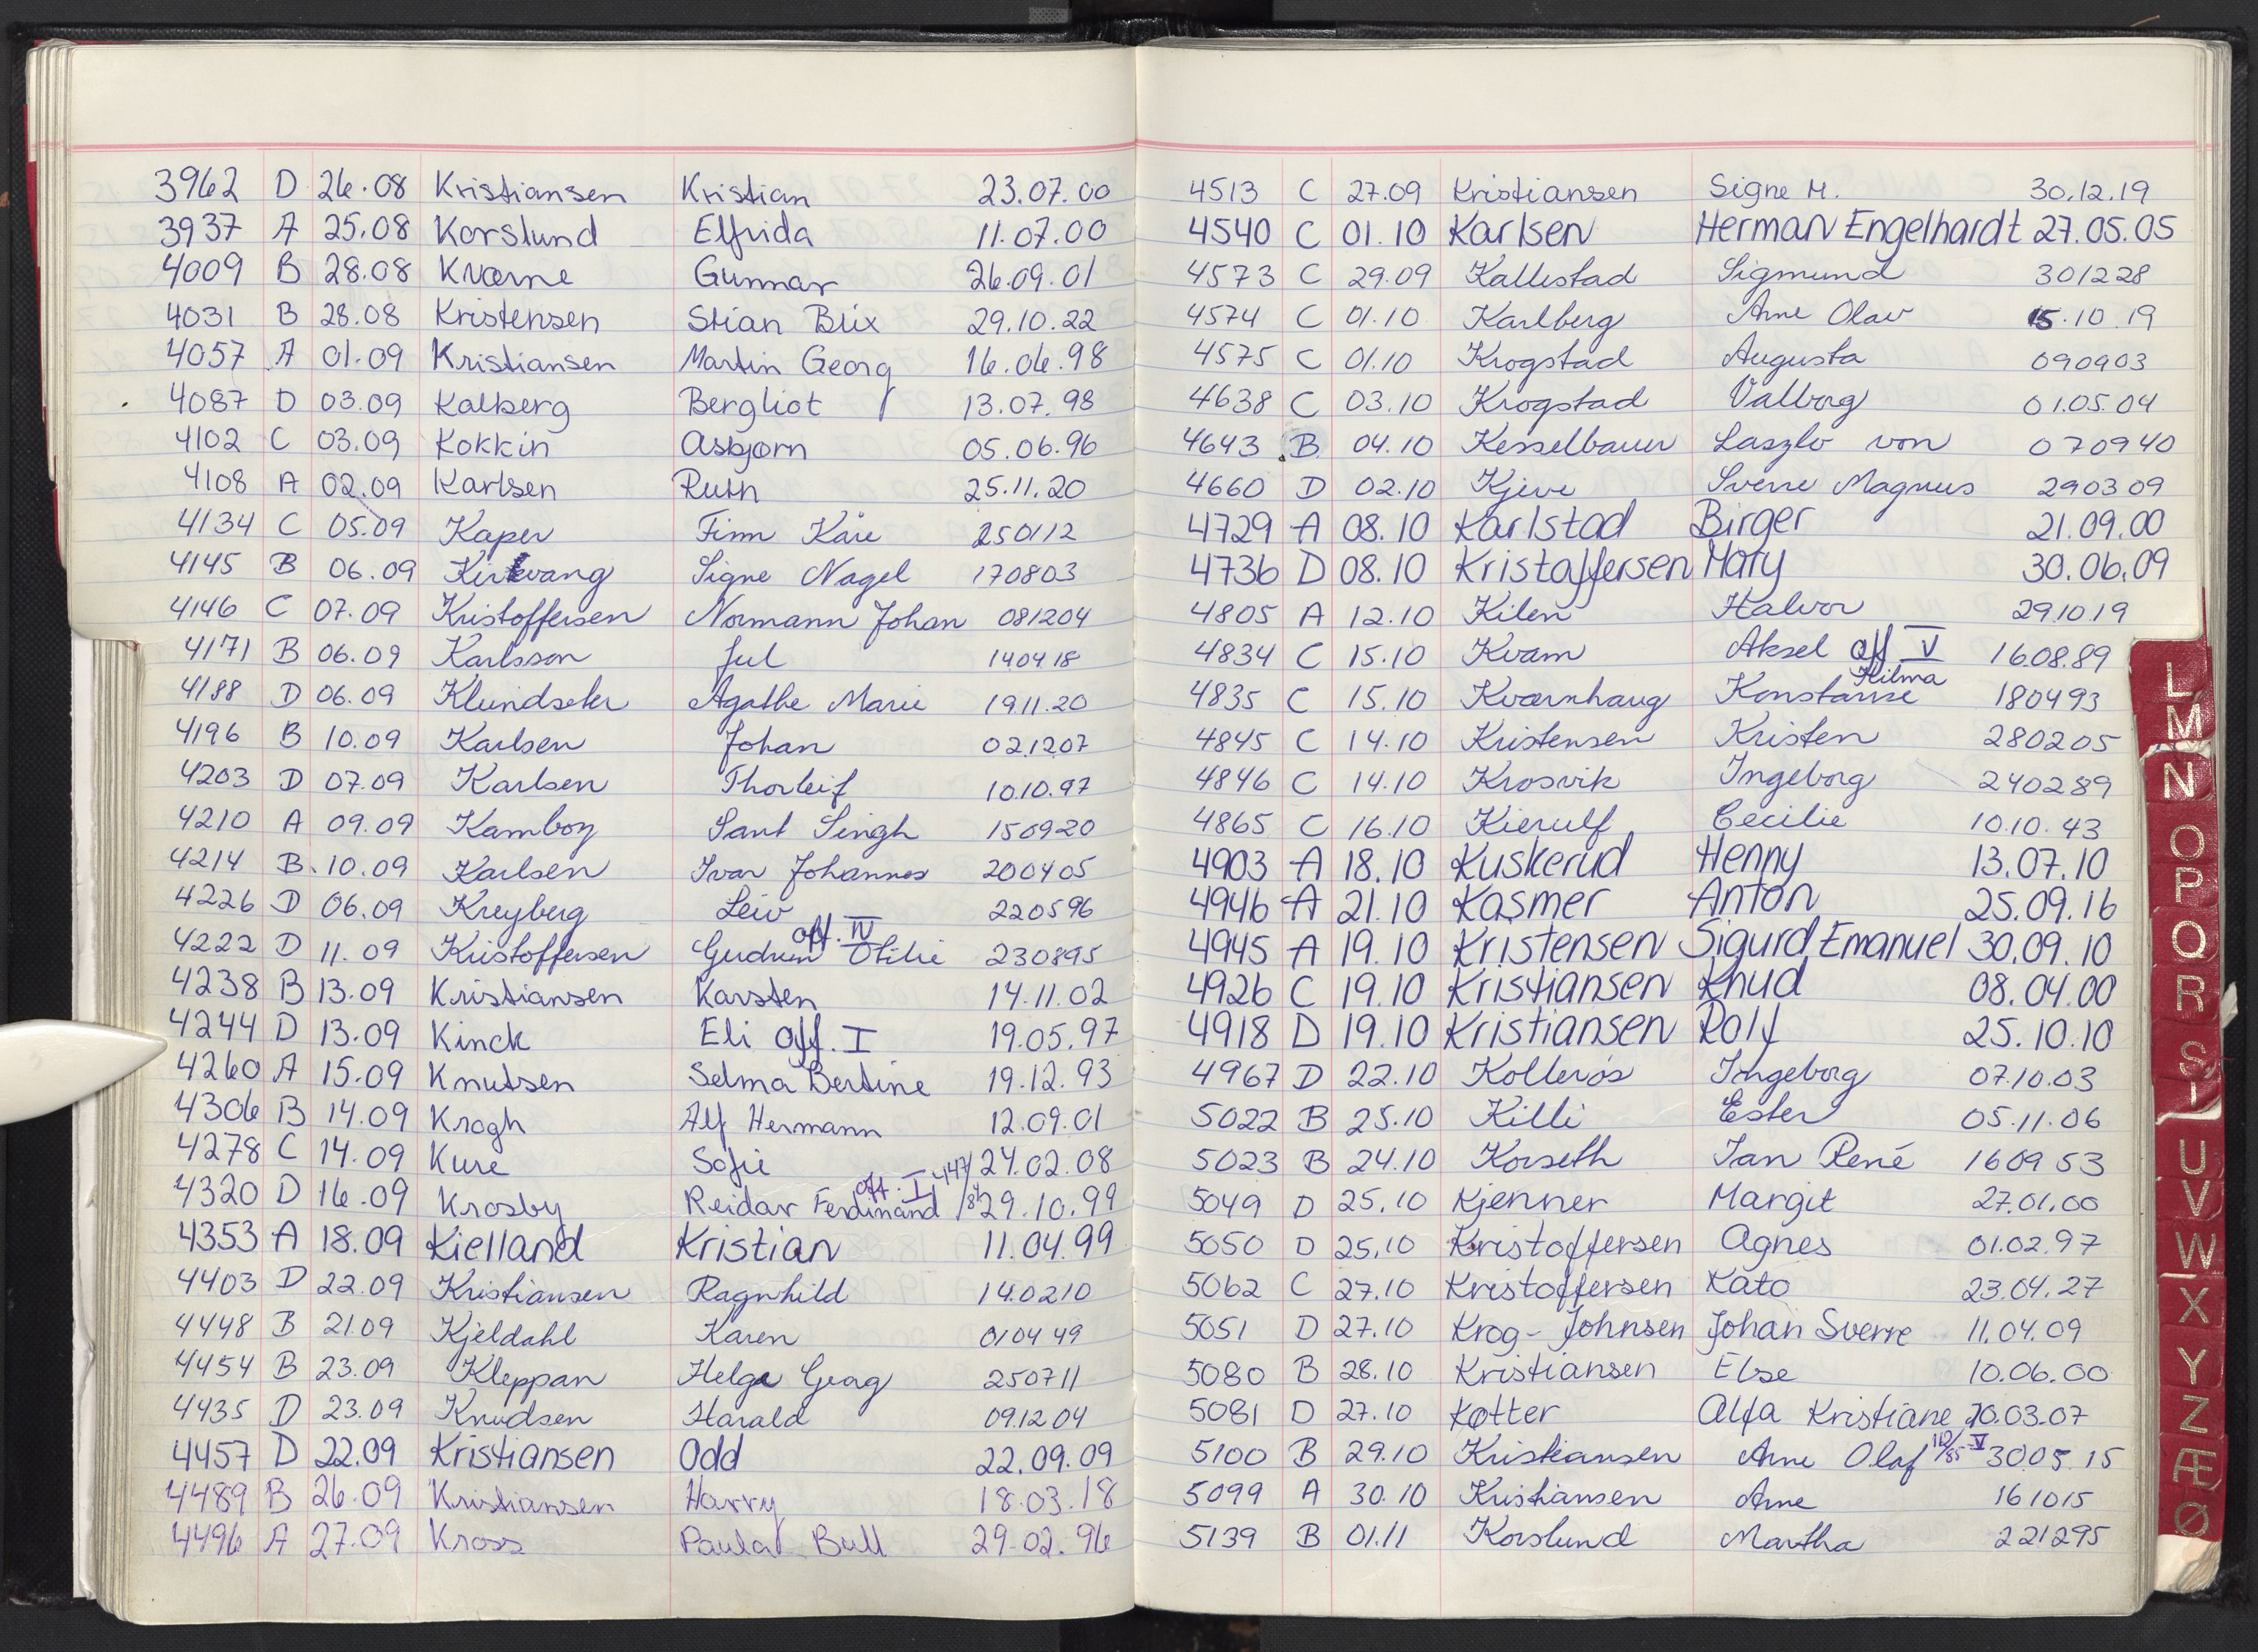 3962 D 26.08 Kristiansen Kristian 23.07.00
3937 A 25.08 Korslund Elfrida 11.07.00
4009 B 28.08 Kværne Gunnar 26.09.01
4031 B 28.08 Kristensen Stian Blix 29.10.22
4057 A 01.09 Kristiansen Martin Georg 16.06.98
4087 D 03.09 Kalberg Bergliot 13.07.98
4102 C 03.09 Kokkin Asbjørn 05.06.96
4108 A 02.09 Karlsen Ruth 25.11.20
4134 C 05.09 Kaper Finn Kåre 250112
4145 B 06.09 Kirkvang Signe Nagel 170803
4146 C 07.09 Kristoffersen Normann Johan 081204
4171 B 06.09 Karlsson Jul 140418
4188 D 06.09 Klundseter Agathe Marie 19.11.20
4196 B 10.09 Karlsen Johan 021207
4203 D 07.09 Karlsen Thorleif 10.10.97
4210 A 09.09 Kamboy Sant Singh 150920
4214 B. 10.09 Karlsen Ivar Johannes 200405
4226 D 06.09 Kreyberg Leiv 220596
off. IV
4222 D 11.09 Kristoffersen Gudrun Otilie 230895
4238 B 13.09 Kristiansen Karsten 14.11.02
4244 D 13.09 Kinck Eli off. I 19.05.97
4260 A 15.09 Knutsen Selma Bertine 19.12.93
4306 B 14.09 Krogh Alf Hermann 12.09.01
4278 C 14.09 Kure Sofie 24.02.08
off. I 447/84
4320 D 16.09 Krosby Reidar Ferdinand 29.10.99
4353 A 18.09 Kielland Kristian 11.04.99
4403 D 22.09 Kristiansen Ragnhild 140210
4448 B 21.09 Kjeldahl Karen 010449
4454 B 23.09 Kleppan Helge Georg 250711
4435 D 23.09 Knudsen Harald 091204
4457 D 22.09 Kristiansen Odd 22.09.09
4489 B 26.09 Kristiansen Harry 18.03.18
4496 A 27.09 Kross Paula Bull 29.02.96
4513 C 27.09 Kristiansen Signe M. 30.12.19
4540 C 01.10 Karlsen Herman Engelhardt 27.05.05
4573 C 29.09 Kallestad Sigmund 301228
4574 C 01.10 Karlberg Arne Olav 15.10.19
4575 C 01.10 Krogstad Augusta 090903
4638 C 03.10 Krogstad Valborg 01.05.04
4643 B 04.10 Kesselbauer Laszlo von 070940
4660 D 02.10 Kjeve Sverre Magnus 290309
4729 A 08.10 Karlstad Birger 21.09.00
4736 D 08.10 Kristaffersen Mary 30.06.09
4805 A 12.10 Kilen Halvor 291019
4834 C 15.10 Kvam Aksel off V 16.08.89
Hilma
4835 C 15.10 Kværnhaug Konstanse 180493
4845 C 14.10 Kristensen Kristen 280205
4846 C 14.10 Krosvik Ingeborg 240289
4865 C 16.10 Kierulf Cecilie 10.10.43
4903 A 18.10 Kuskerud Henny 13.07.10
4946 A 21.10 Kasmer Anton 25.09.16
4945 A 19.10 Kristensen Sigurd Emanuel 30.09.10
4926 C 19.10 Kristiansen Knud 08.04.00
4918 D 19.10 Kristiansen Rolf 25.10.10
4967 D 22.10 Kollerøs Ingeborg 07.10.03
5022 B 25.10 Killi Ester 05.11.06
5023 B 24.10 Korseth Jan René 160953
5049 D 25.10 Kjenner Margit 27.01.00
5050 D 25.10 Kristoffersen Agnes 01.02.97
5062 C 27.10 Kristoffersen Kato 23.04.27
5051 D 27.10 Krog-Johnsen Johan Sverre 11.04.09
5080 B 28.10 Kristiansen Else 10.06.00
5081 D 27.10 Køtter Alfa Kristiane 20.03.07
5100 B 29.10 Kristiansen Arne Olaf 110/85 V 300515
5099 A 30.10 Kristiansen Arne 161015
5139 B 01.11 Korslund Martha 221295
L
M
N
O
P
Q
R
S
T
U
V
W
X
Y
Z
Æ
Ø